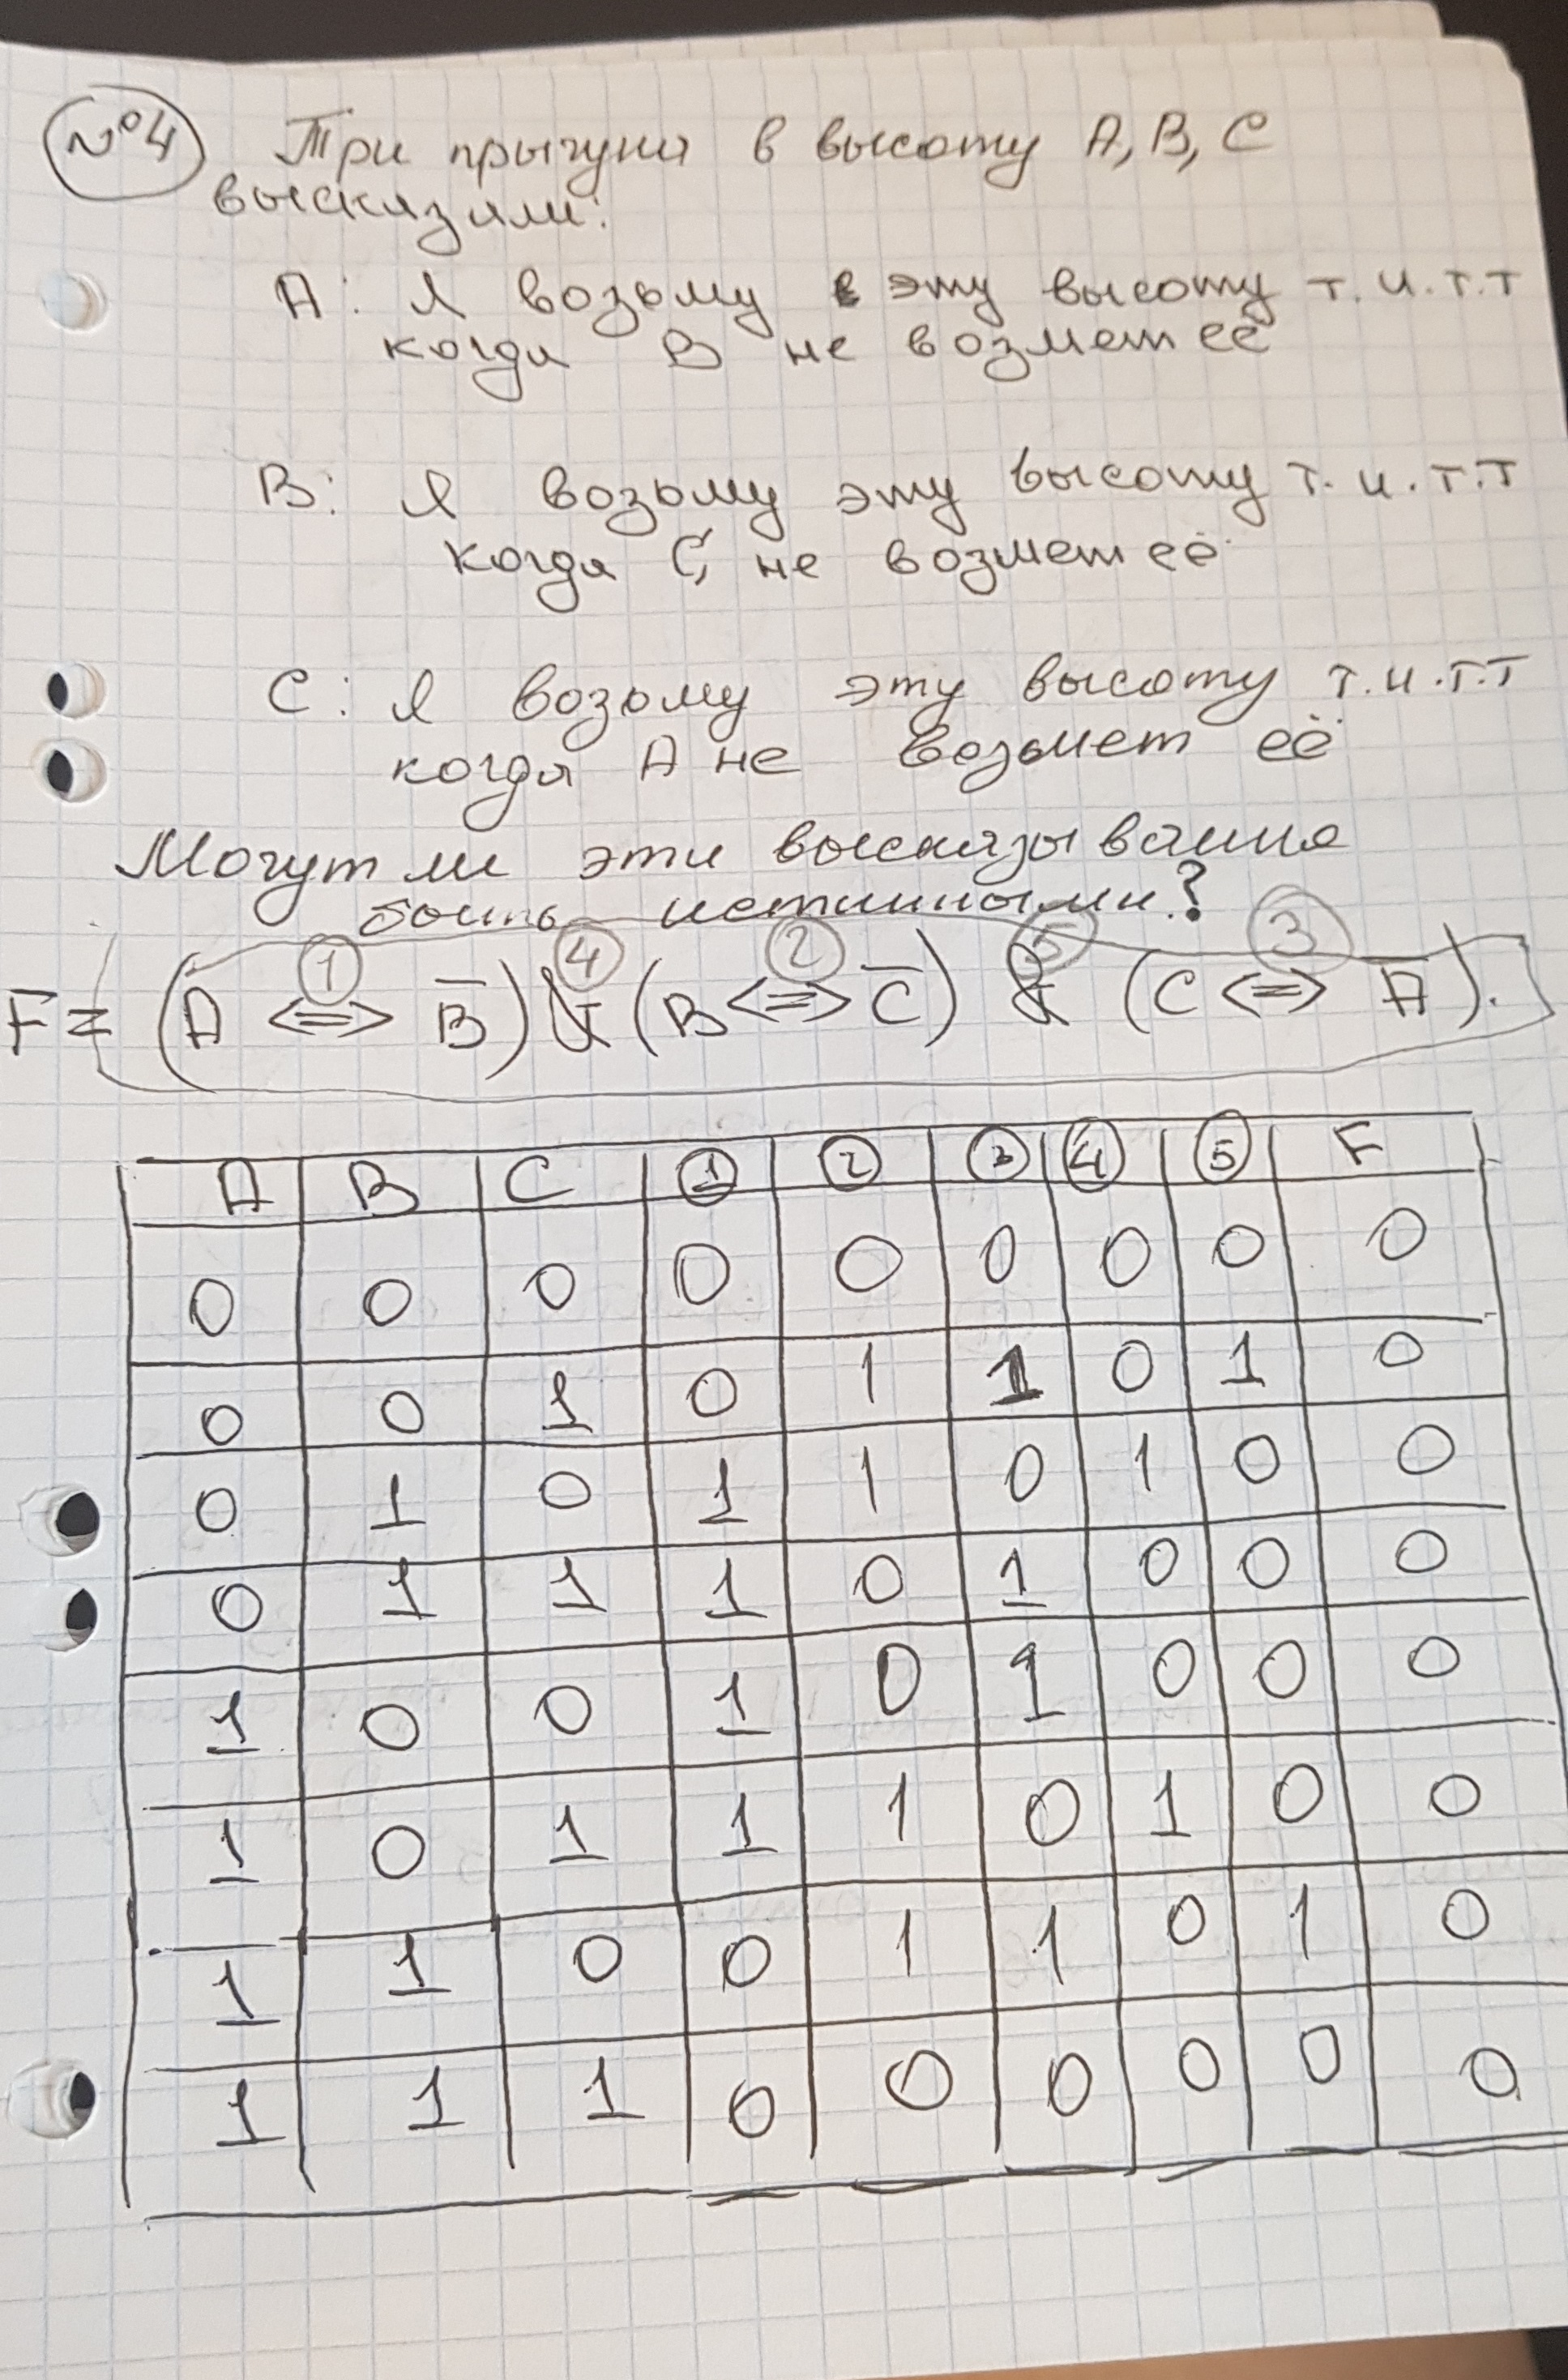 №4 Три прыгуна в высоту A, B, C
высказали:
A: Я возьму эту высоту т.и.т.т
когда B не возмет её
B: Я возьму эту высоту т.и.т.т
когда C не возмет её
C: Я возьму эту высоту т.и.т.т
когда A не возмет её
Могут ли эти высказывания
быть истинными?
1 4 2 5 3
F = (A <=> B̅) & (B <=> C̅) & (C <=> A̅).
A B C 1 2 3 4 5 F
0 0 0 0 0 0 0 0 0
0 0 1 0 1 1 0 1 0
0 1 0 1 1 0 1 0 0
0 1 1 1 0 1 0 0 0
1 0 0 1 0 1 0 0 0
1 0 1 1 1 0 1 0 0
1 1 0 0 1 1 0 1 0
1 1 1 0 0 0 0 0 0